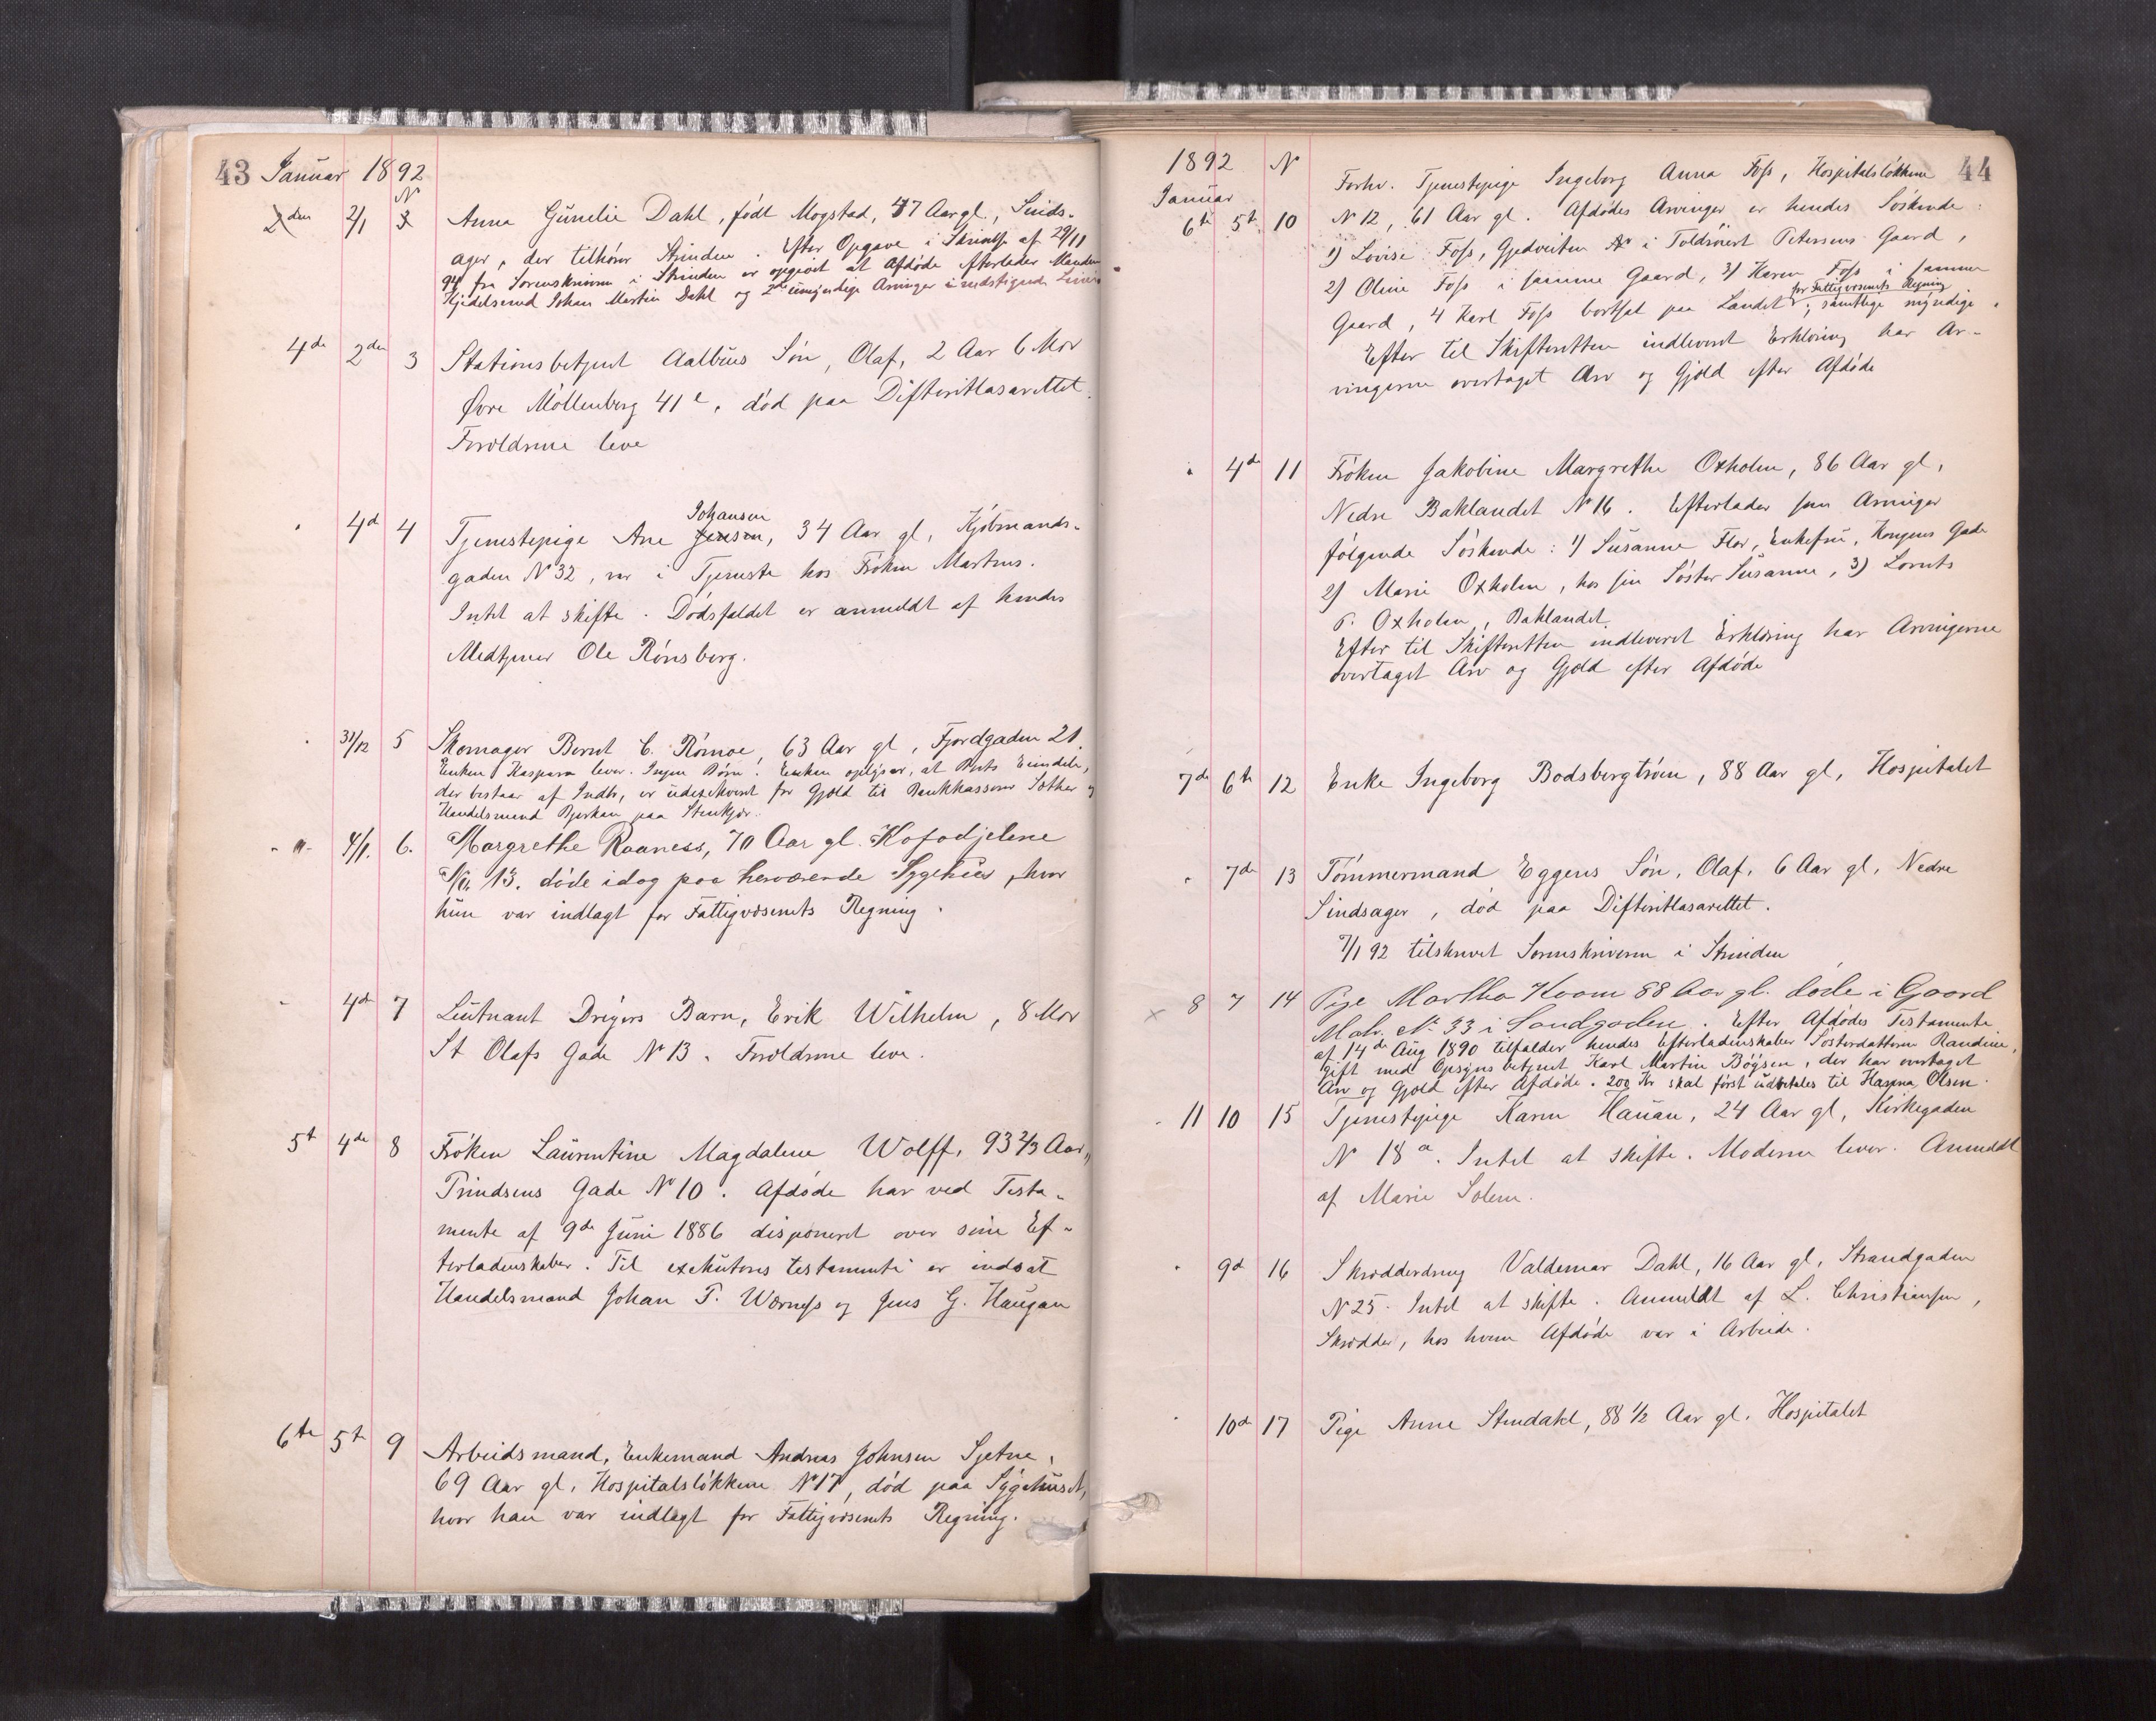 43 Januar 1892
N
2den 2/1 2 Anna Gunelie Dahl, født Mogstad, 47 Aar gl, Sinds-
ager, der tilhører Strinden. Efter Opgave i Skrivelse af 29/11
94 fra Sorenskriveren i Strinden er opgivet at Afdøde efterlader Manden
Hjulsmed Johan Martin Dahl og 2de umyndige Arvinger i nedstigende Linie
4de 2den 3 Stationsbetjent Aalbus Søn, Olaf, 2 Aar 6 Mdr
Øvre Möllenberg 41 e, död paa Difteritlasarettet.
Forældrene leve
" 4d 4 Tjenestepige Ane Jensen, 34 Aar gl, Kjöbmands-
Johansen
gaden No 32, var i Tjeneste hos Frøken Martens.
Intet at skifte. Dödsfaldet er anmeldt af hendes
Medtjener Ole Rönsberg.
" 31/12 5 Skomager Bernt C. Römoe, 63 Aar gl, Fjordgaden 21.
Enken Kaspara lever. Ingen Börn. Enken oplyser, at Boets Eiendele,
der bestaar af Indbo, er udexekveret for Gjæld til Bankkasserer Sæther og
Handelsmand Bjerkan paa Stenkjær.
- " - 4/1. 6. Margrethe Raaness, 70 Aar gl. Kofodjelene
No 13. döde idag paa herværende Sygehus, hvor
hun var indlagt for Fattigvæsenets Regning.
" 4de 7 Lieutnant Dreyers Barn, Erik Wilhelm, 8 Mdr
St Olafs Gade No 13. Forældrene leve.
5t 4de 8 Fröken Laurentine Magdalene Wolff, 93 2/3 Aar,
Prindsens Gade No 10. Afdöde har ved Testa-
mente af 9de Juni 1886 disponeret over sine Ef-
terladenskaber. Til exekutores testamenti er indsat
Handelsmand Johan P. Værness og Jens G. Haugan
6te 5te 9 Arbeidsmand, Enkemand Andreas Johnsen Sjetne,
69 Aar gl, Hospitalslökkene No 17, död paa Sygehuset,
hvor han var indlagt for Fattigvæsenets Regning.
1892 N 44
Januar
6te 5te 10 Forhv. Tjenestepige Ingeborg Anna Foss, Hospitalslökkene
No 12, 61 Aar gl. Afdödes Arvinger er hendes Söskende:
1) Lovise Foss, i Toldrorert Petersens Gaard,
2) Oline Foss i samme Gaard, 3) Karen Foss i samme
Gaard, 4 Karl Foss bortsat paa Landet for Fattigvæsenets Regning; samtlige myndige.
Efter til Skifteretten indleveret Erklæring har Ar-
vingerne overtaget Arv og Gjæld efter Afdöde
" 4de 11 Fröken Jakobine Margrethe Oxholm, 86 Aar gl,
Nedre Baklandet No 16. Efterlader som Arvinger
fölgende Söskende: 1) Susanne Flor, Enkefru, Kongens Gade
2) Marie Oxholm, hos sin Söster Susanne, 3) Lorents
P. Oxholm, Baklandet.
Efter til Skifteretten indleveret Erklæring har Arvingerne
overtaget Arv og Gjæld efter Afdöde
7de 6te 12 Enke Ingeborg Bodsbergtröen, 88 Aar gl, Hospitalet
" 7de 13 Tömmermand Eggens Søn, Olaf, 6 Aar gl, Nedre
Sindsager, död paa Difteritlasarettet.
7/1 92 tilskrevet Sorenskriveren i Strinden
x 8 7 14 Pige Martha Kvam 88 Aar gl. döde i Gaard
Matr. No 33 i Sandgaden. Efter Afdödes Testamente
af 14de Aug 1890 tilfalder hendes Efterladenskaber Sösterdatteren Randine,
gift med Opsynsbetjent Karl Martin Bögsen, der har overtaget
Arv og Gjæld efter Afdöde. 200 Kr skal först udbetales til Hasina Olsen.
" 11 10 15 Tjenestepige Karen Hauan, 24 Aar gl, Kirkegaden
No 18 a. Intet at skifte. Moderen lever. Anmeldt
af Marie Solem.
" 9d 16 Skrædderdreng Valdemar Dahl, 16 Aar gl, Strandgaden
No 25. Intet at skifte. Anmeldt af L. Christiansen,
Skrædder, hos hvem Afdöde var i Arbeide.
" 10d 17 Pige Anne Stendahl, 88 1/2 Aar gl. Hospitalet